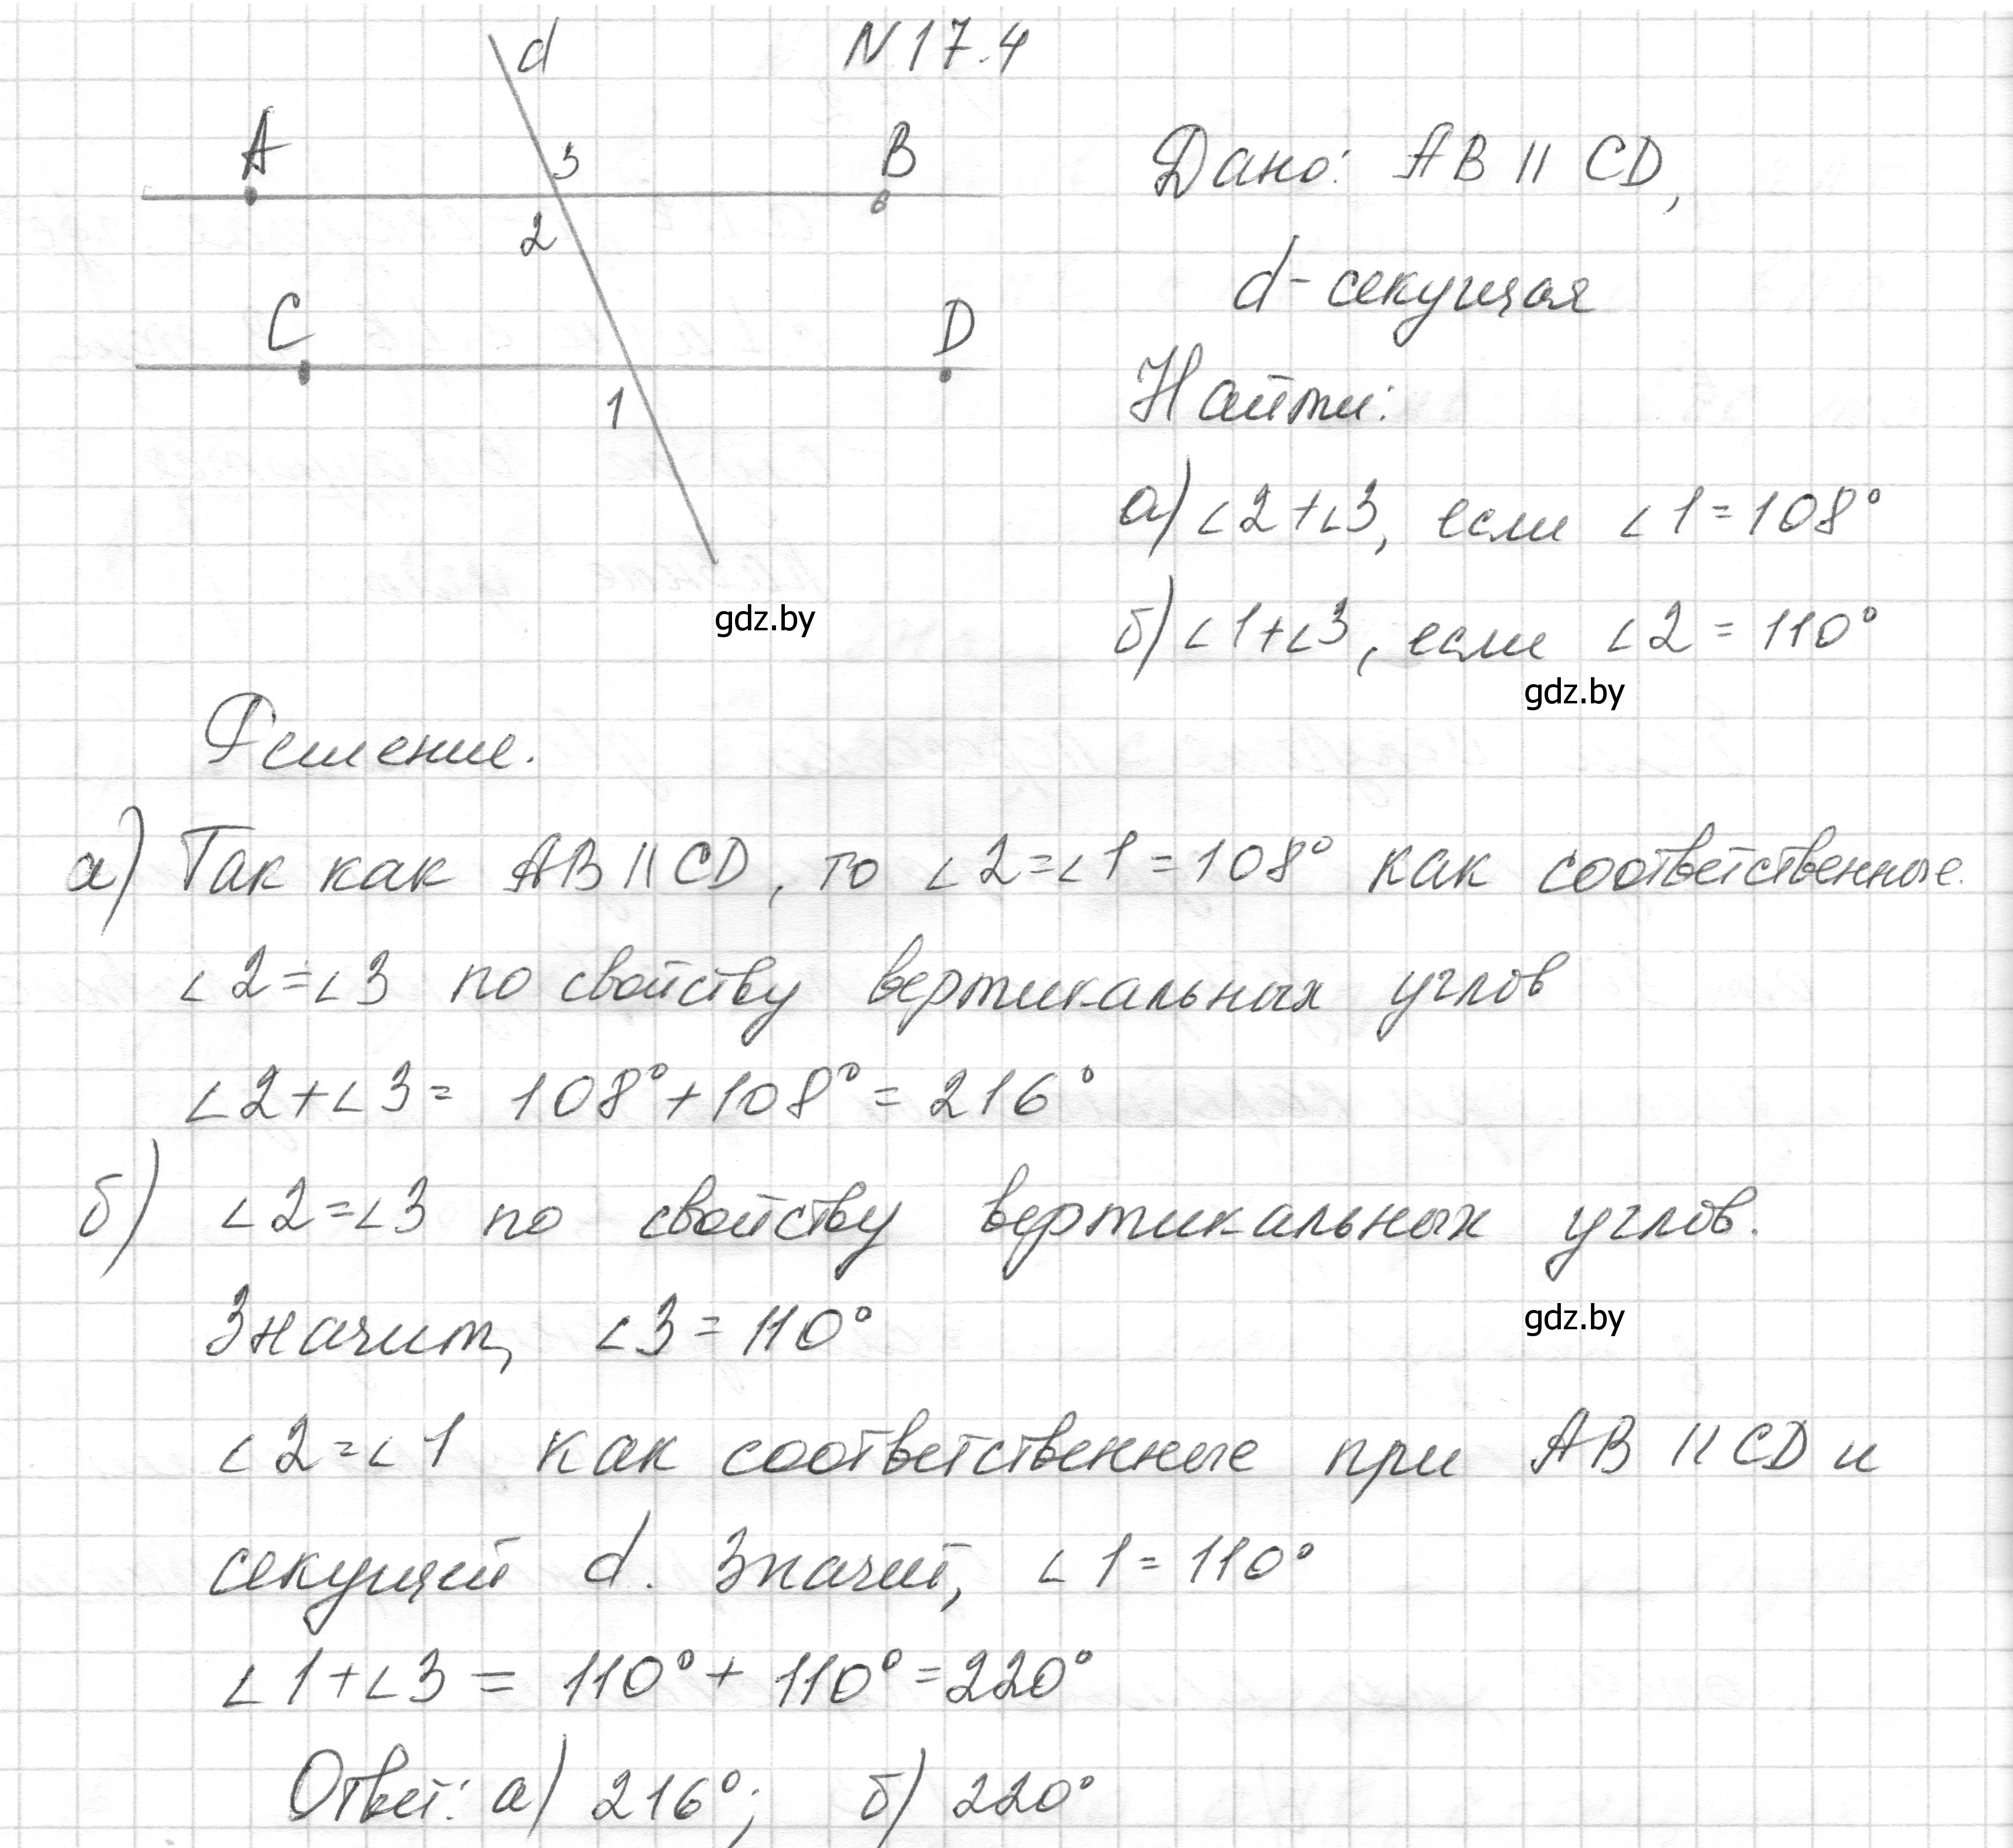 N 17.4
d
A
3
B
2
C
D
1
Дано: AB || CD,
d - секущая
Найти:
а) ∠2+∠3, если ∠1=108°
б) ∠1+∠3, если ∠2 = 110°
gdz.by
gdz.by
Решение.
а) Так как AB || CD, то ∠2=∠1=108° как соответственные.
∠2=∠3 по свойству вертикальных углов
∠2+∠3= 108°+108°=216°
б) ∠2=∠3 по свойству вертикальных углов.
Значит, ∠3=110°
gdz.by
∠2=∠1 как соответственные при AB || CD и
секущей d. Значит, ∠1=110°
∠1+∠3 = 110°+110°=220°
Ответ: а) 216°; б) 220°